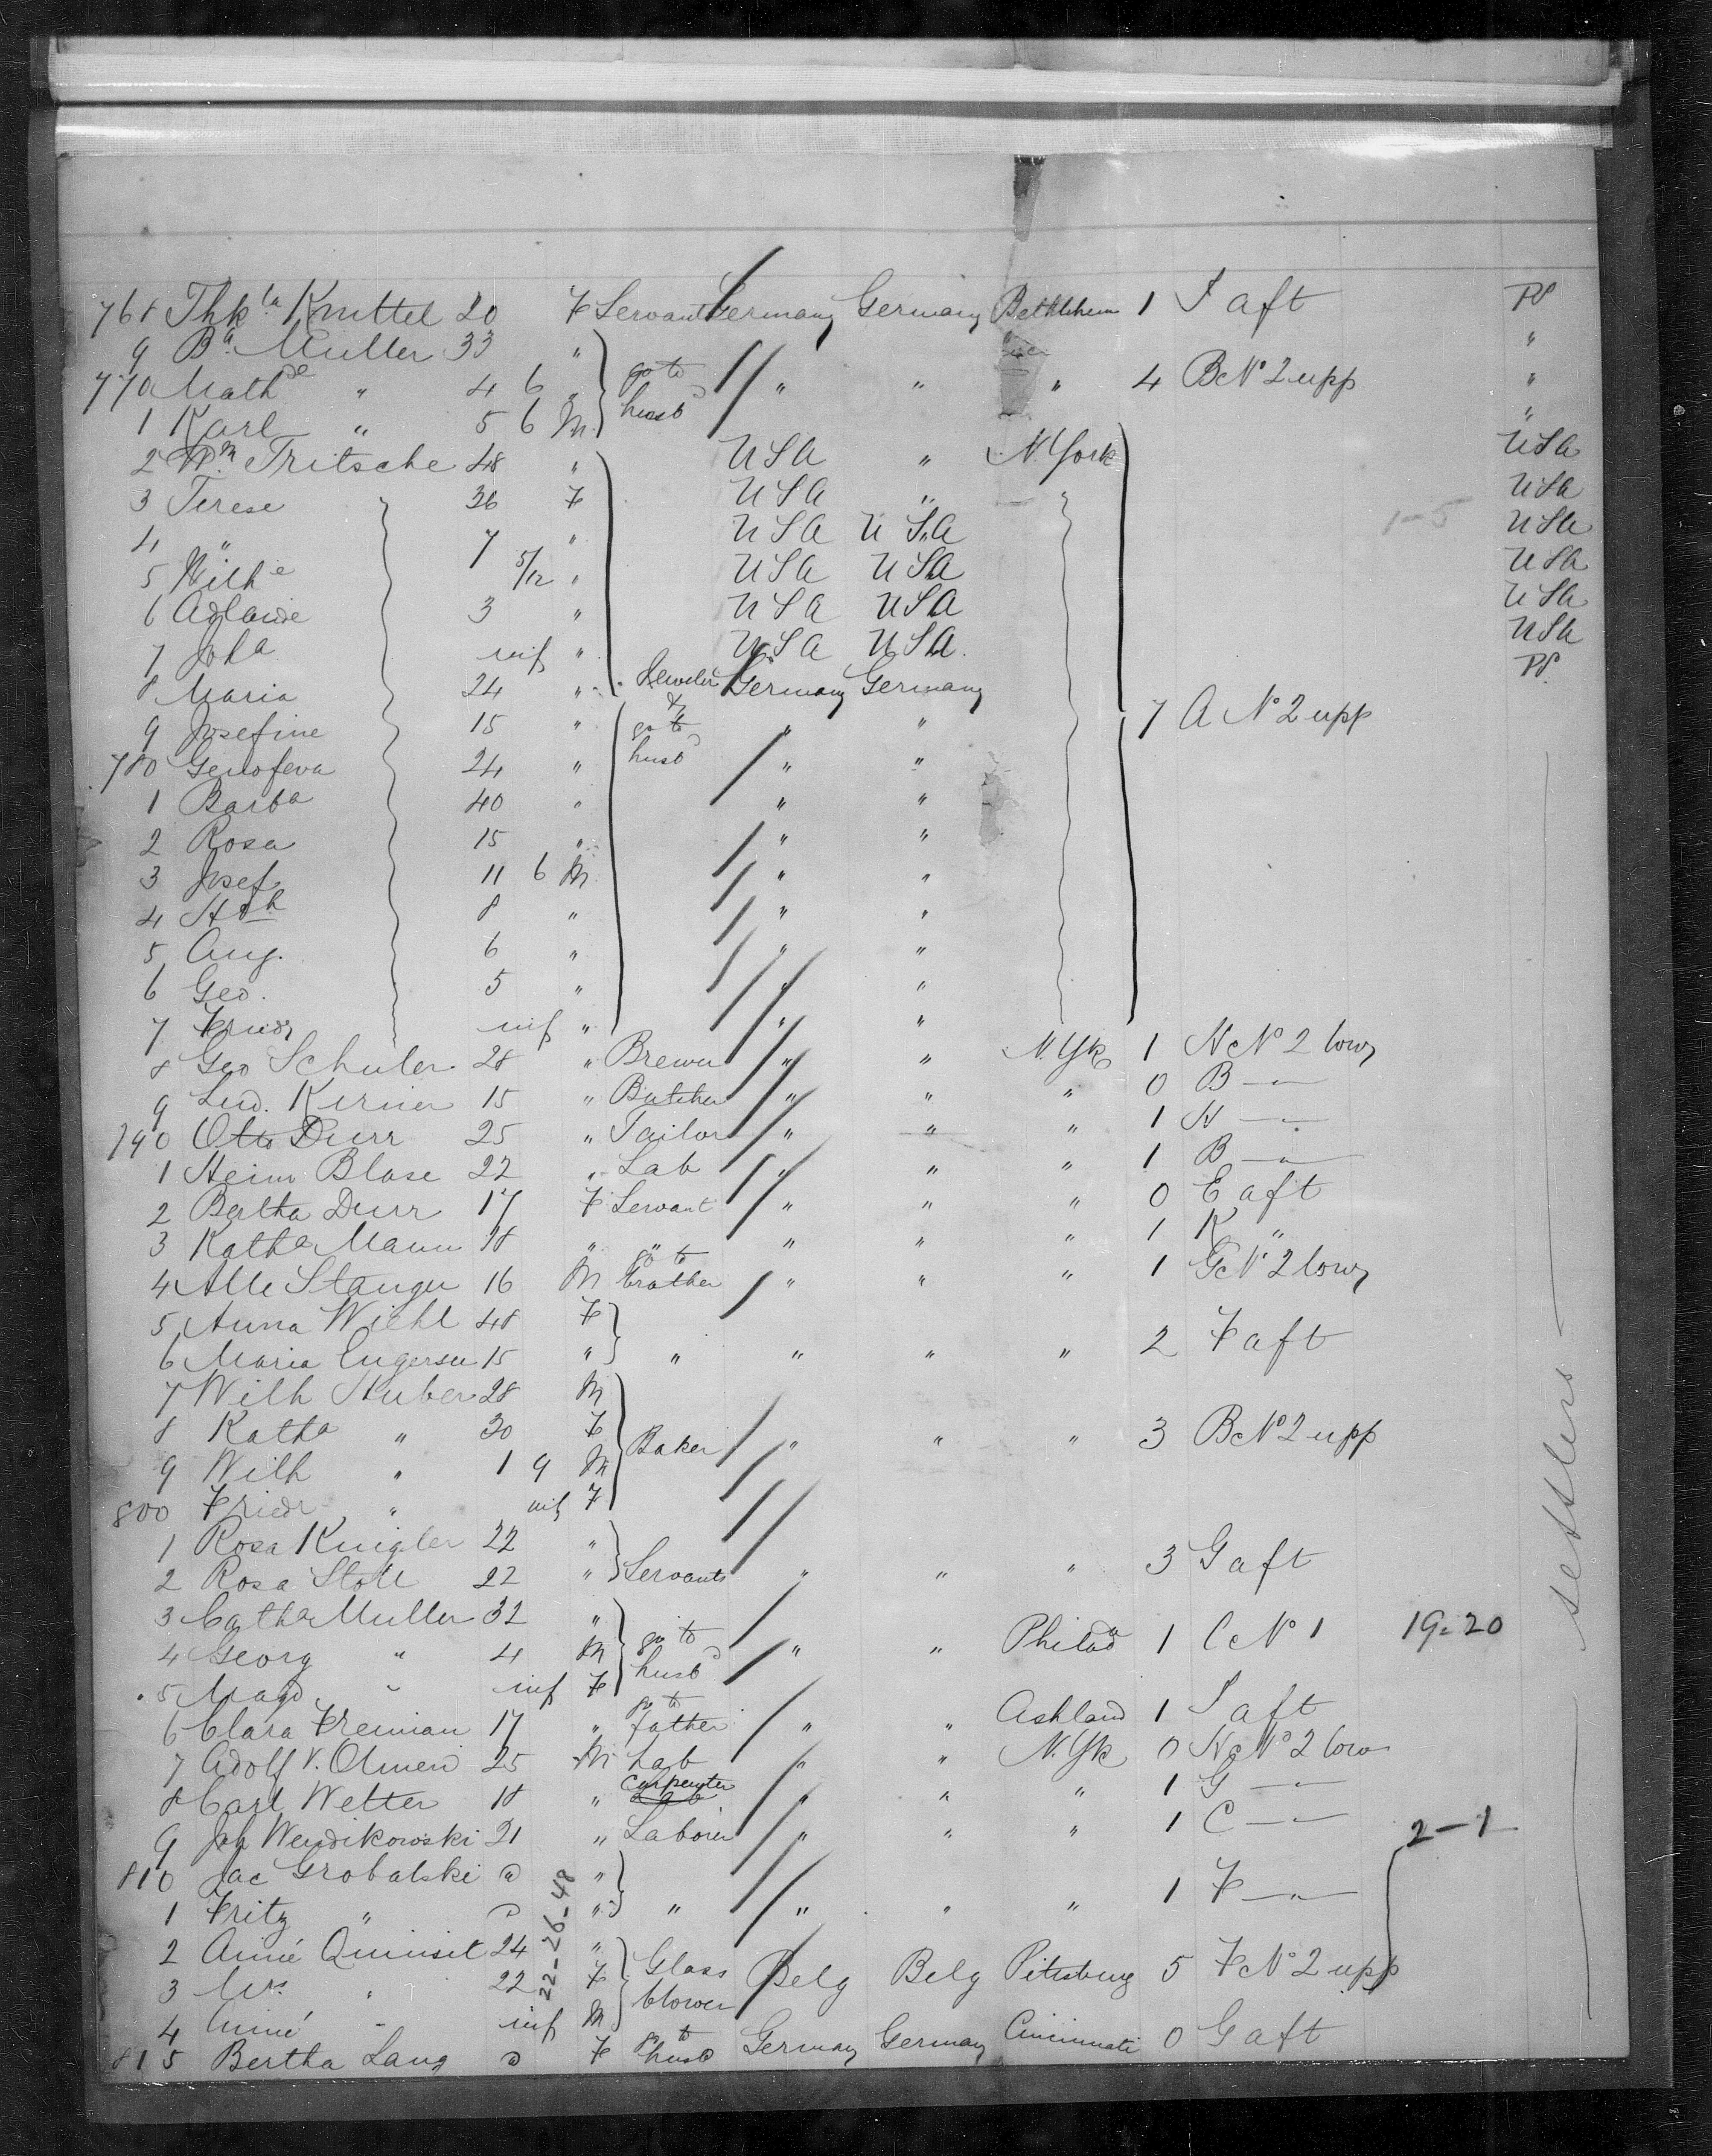 768 Thkla Knittel 20 F Servant Germany Germany Bethlehem 1 I aft PS
9 Ba Muller 33 " "
770 Mathde " 4 6 " go to husbd " " " 4 Bc No 2 upp "
1 Karl " 5 6 M "
2 Wm Tritsche 48 " USA " N. York USA
3 Terese 36 F USA " USA
4 " 7 " USA USA 1-5 USA
5 Wilhe 5/12 " USA USA USA
6 Adlaide 3 " USA USA USA
7 Joha inf " USA USA USA
8 Maria 24 " Jeweler Germany Germany PS
9 Josefine 15 " & go to husbd " " 7 A No 2 upp
780 Genofeva 24 " " "
1 Barba 40 " " "
2 Rosa 15 " " "
3 Josef 11 6 M " "
4 8 " " "
5 Aug. 6 " " "
6 Geo. 5 " " "
7 Friedr inf " " "
8 Geo Schuler 28 " Brewer " " N. Yk 1 Nc No 2 lowr
9 Lud. Kerner 15 " Butcher " " " 0 B —"—
790 Otto Durr 25 " Tailor " " " 1 N —"—
1 Heinr Blase 22 " Lab " " " 1 B —"—
2 Bertha Durr 17 F Servant " " " 0 E aft
3 Katha Mann 18 " " " " " 1 K "
4 Alb Stanger 16 M go to brother " " " 1 Gc No 2 lowr
5 Anna Wiehl 48 F
6 Maria 15 " " " " " 2 F aft
7 Wilh Huber 28 M
8 Katha " 30 F Baker " " " 3 Bc No 2 upp
9 Wilh " 1 9 M
800 Friedr " inf F
1 Rosa 22 "
2 Rosa Stoll 22 " Servants " " " 3 G aft
3 Catha Muller 32 "
4 Georg " 4 M go to husbd " " Philada 1 Cc No 1 19-20
5 Magd " inf F
6 Clara Fremian 17 " go to father " " Ashland 1 I aft
7 Adolf v. Olmen 25 M Lab " " N. Yk 0 Nc No 2 low
8 Carl Wetter 18 " Carpenter " " " 1 G —"—
9 Joh Wendikowski 21 " Laborer " " " 1 C —"—
2-1
810 Jac Grobalski a "
1 Fritz " a " " " " " 1 F —"—
22-26-48
2 Aimé Quinset 24 "
3 Mrs " 22 F Glass blower Belg Belg Pittsburg 5 Fc No 2 upp
4 Aimé " inf M
815 Bertha Lang a F go to husbd Germany Germany Cincinnati 0 G aft
settlers